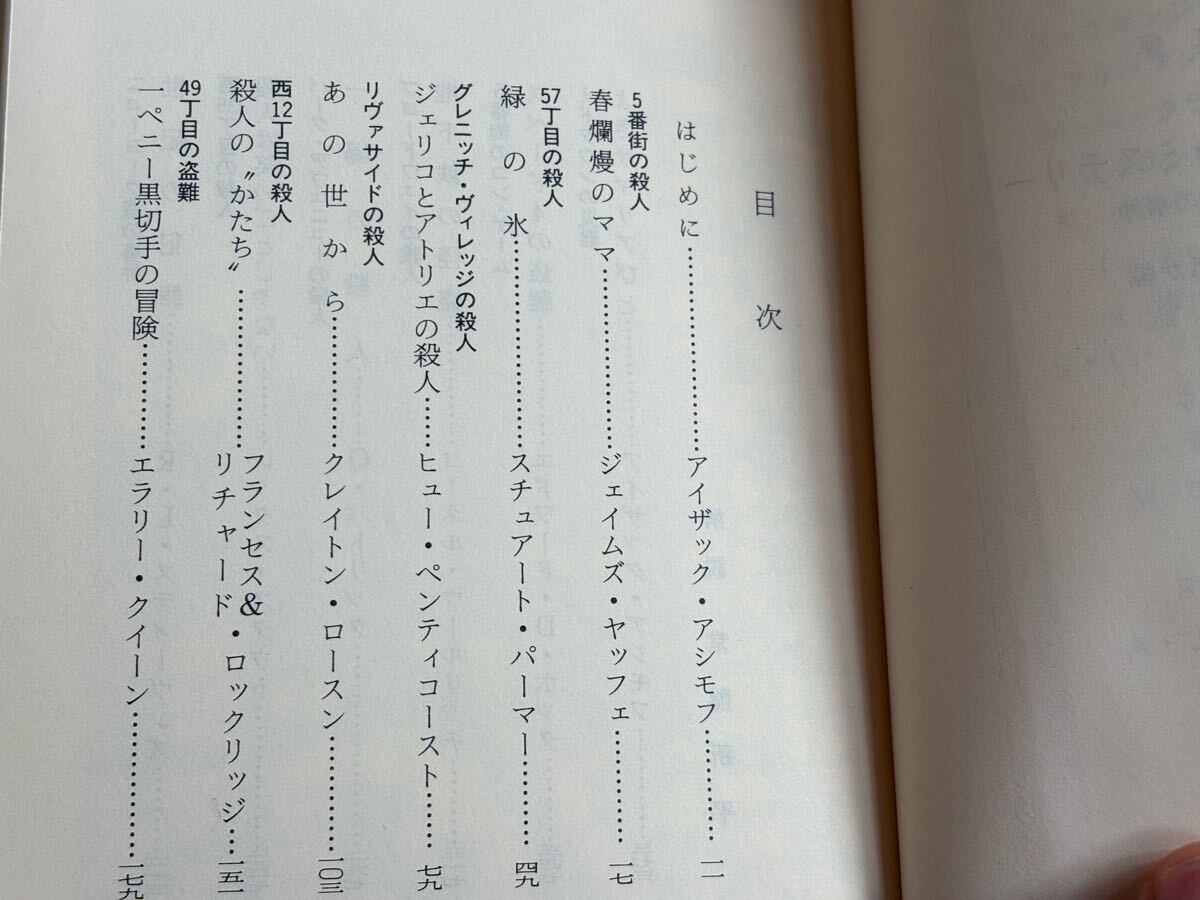 目次
はじめに……………………アイザック・アシモフ…………一一
5番街の殺人
春爛熳のママ……………………ジェイムズ・ヤッフェ…………一七
57丁目の殺人
緑の氷……………………スチュアート・パーマー…………四九
グレニッチ・ヴィレッジの殺人
ジェリコとアトリエの殺人……ヒュー・ペンティコースト……七九
リヴァサイドの殺人
あの世から……………クレイトン・ロースン…………一〇三
西12丁目の殺人
殺人の〝かたち〟………………フランセス&リチャード・ロックリッジ…一五一
49丁目の盗難
一ペニー黒切手の冒険…………エラリー・クイーン………………一七九